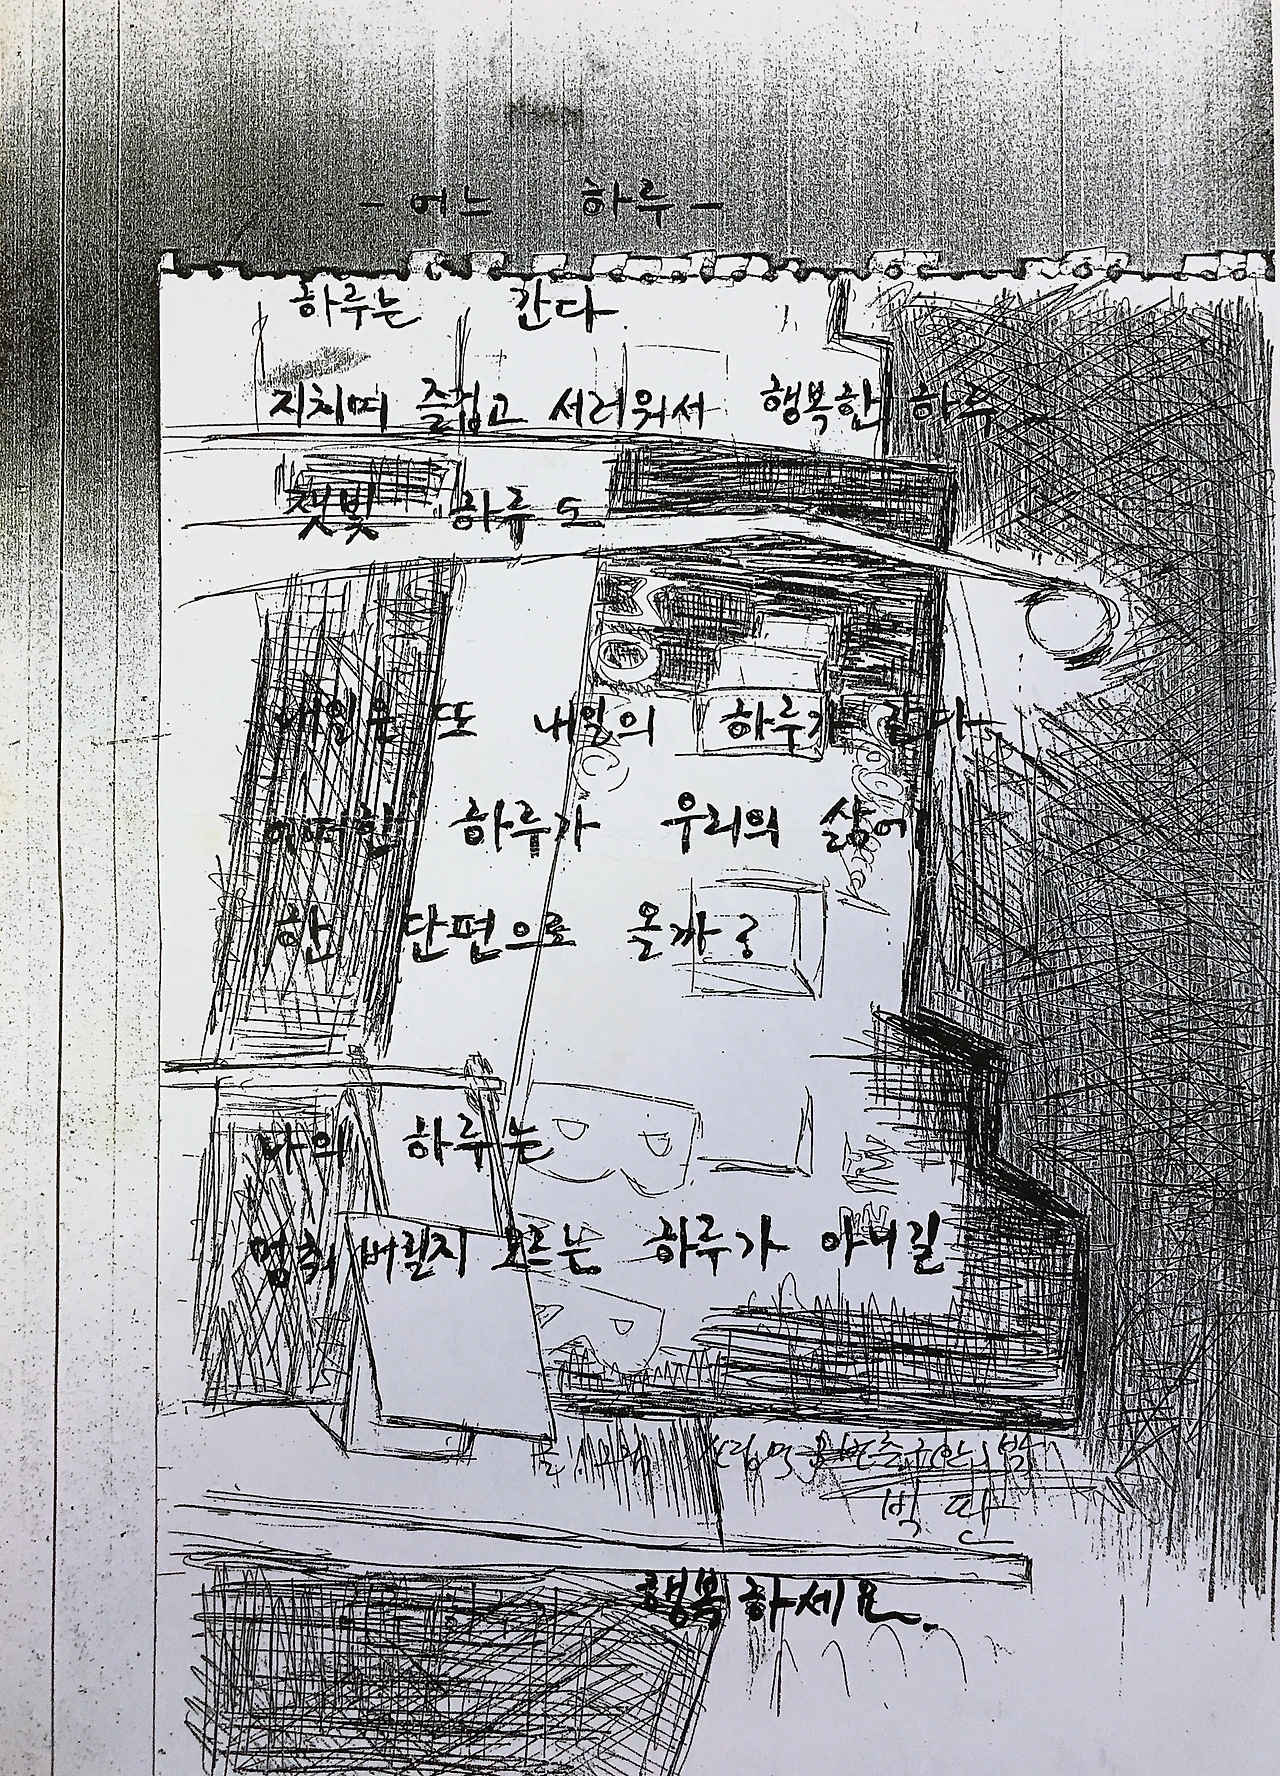 - 어느 하루 -
하루는 간다
지치며 즐겁고 서러워서 행복한 하루
잿빛 하루도
내일은 또 내일의 하루가 간다
어떠한 하루가 우리의 삶에
한 단편으로 올까?
나의 하루는
멈춰 버릴지 모르는 하루가 아니길
행복하세요.